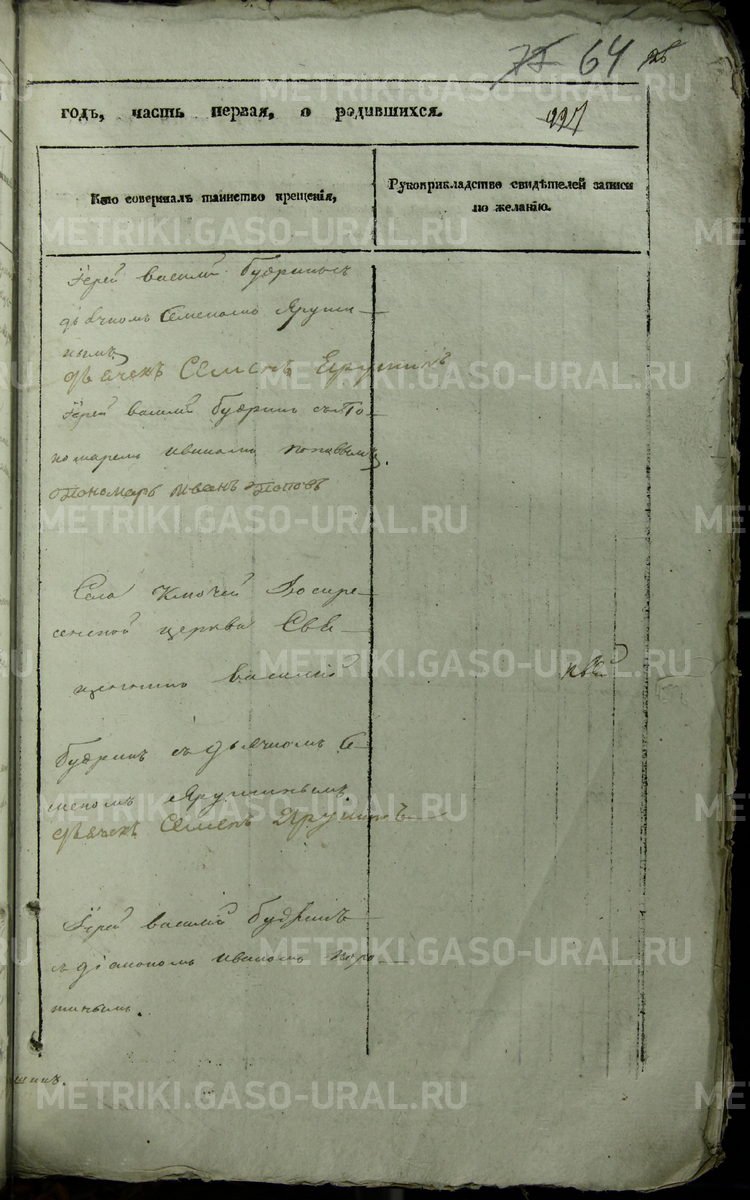 75 64
годъ, часть первая, о родившихся. 227
Кто совершалъ таинство крещенія,
Рукоприкладство свидѣтелей записи
по желанію.
Іерей василій Будринъ съ
дьячкомъ Семеномъ Яруши
нымъ
дьячекъ Семенъ Ерушинъ
Іерей василій Будринъ съ По
номаремъ иваномъ поповымъ.
Пономарь иванъ Поповъ
Села Ключей Воскре
сенской церкви Свя
щенникъ василій
Будринъ съ дьячкомъ Се
меномъ Ярушинымъ
дьячекъ Семенъ Ярушинъ
Іерей василій Будринъ
съ діакономъ иваномъ
METRIKI.GASO-URAL.RU